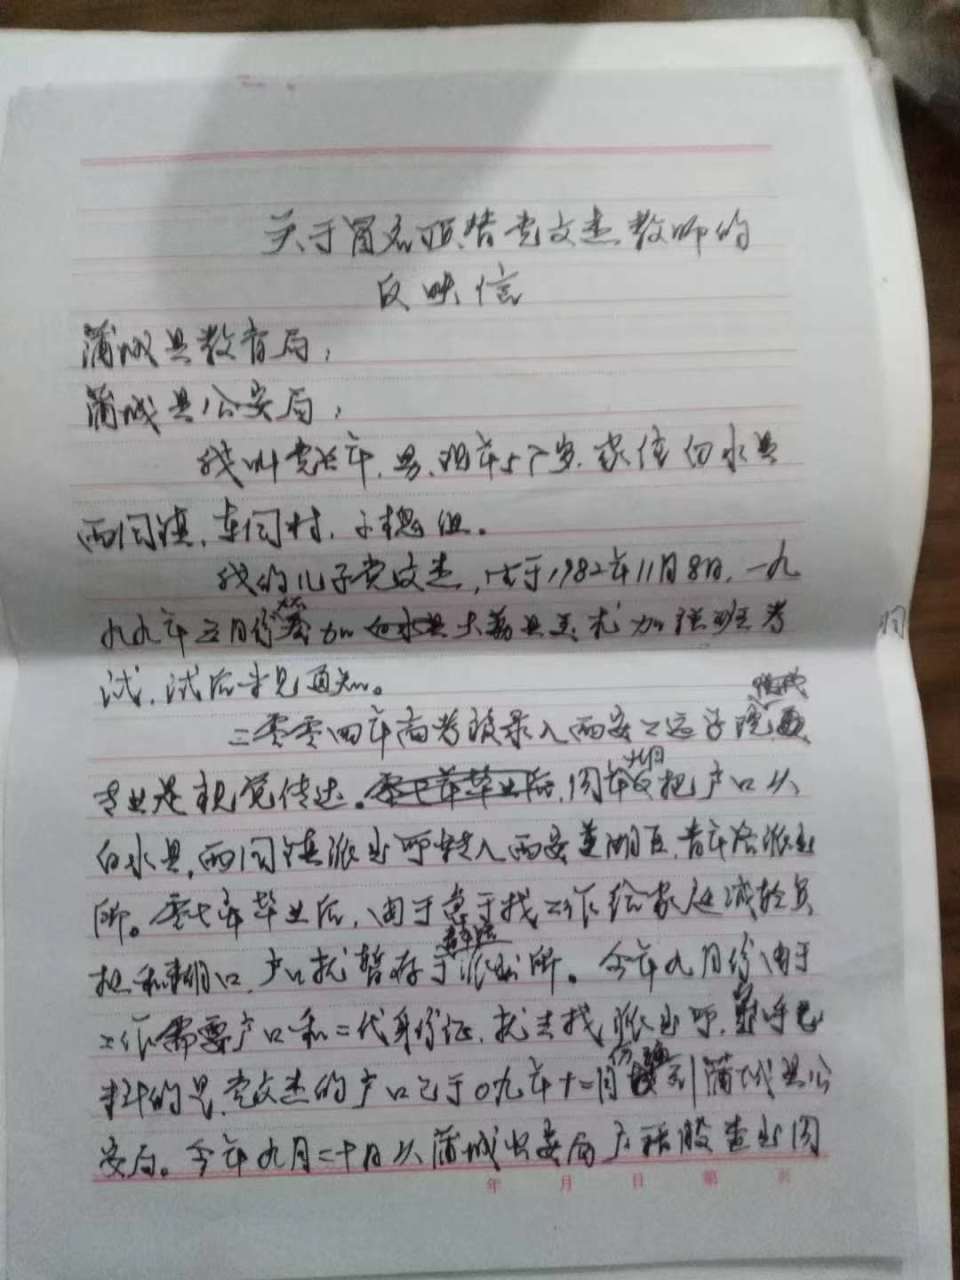 关于冒名顶替党文杰教师的
反映信
蒲城县教育局:
蒲城县公安局:
我叫党 年,男,现年57岁,家住白水县
西固镇,车固村,子槐组。
我的儿子党文杰,生于1982年11月8日,一九
九九年五月份参加大荔县美术加强班考
试,试后未见通知。
二零零四年高考被录入西安工运学院,
专业是视觉传达。同年九月把户口从
白水县,西固镇派出所转入西安莲湖区,青年路派出
所。零七年毕业后,由于急于找工作给家庭减轻负
担和糊口,户口就暂存于青年路派出所。今年九月份由于
工作需要户口和二代身份证,就去找派出所,
料的是,党文杰的户口已于0九年十二月份 到蒲城县公
安局。今年九月二十日从蒲城公安局户籍股查出同
年 月 日 第 页